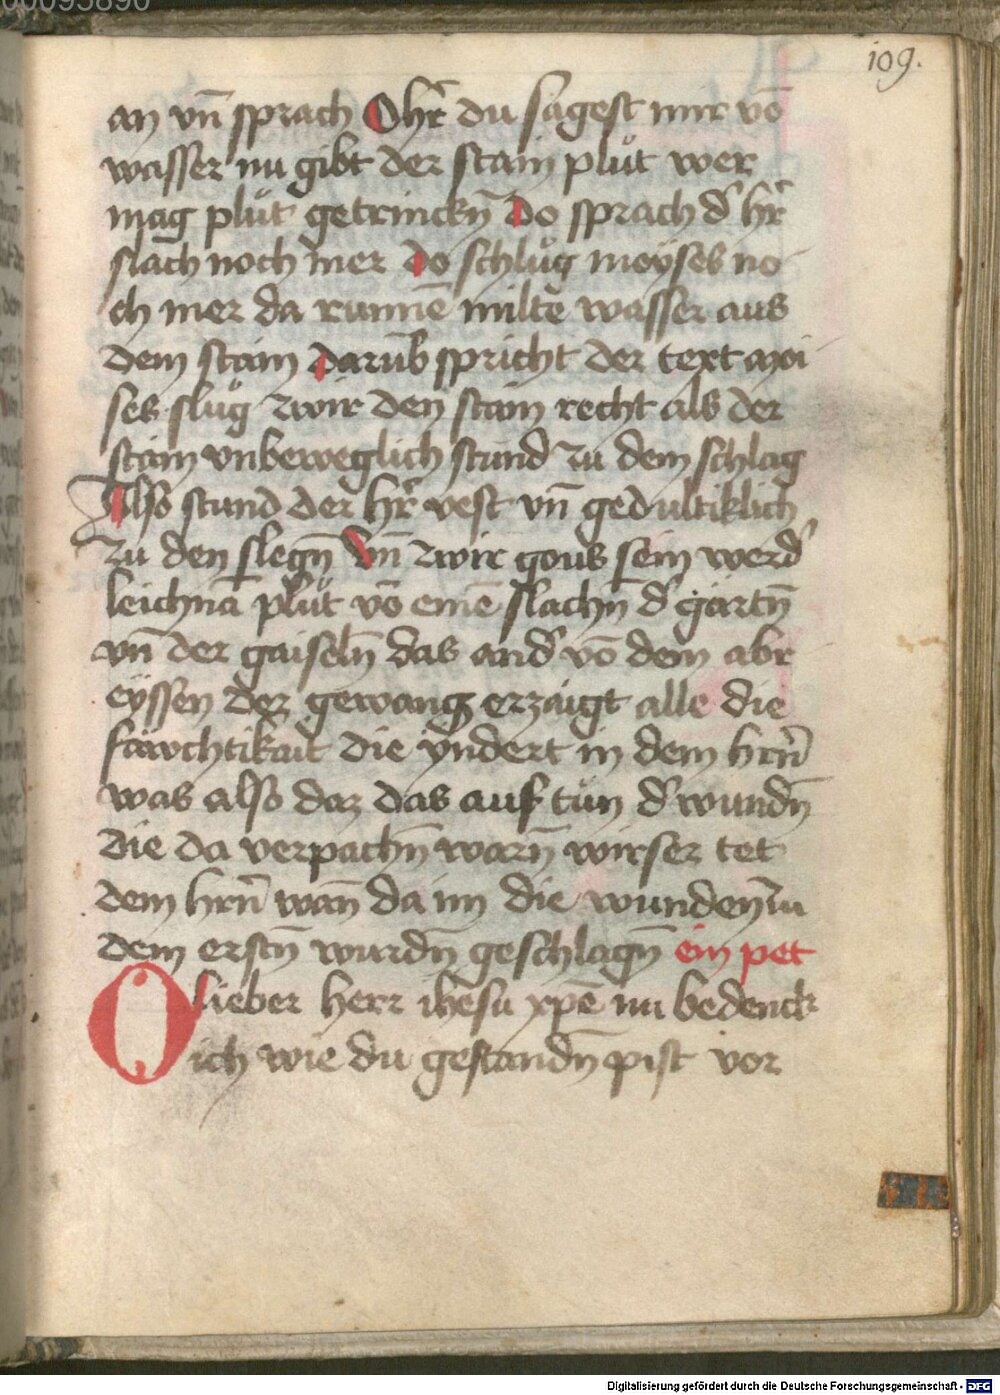 00095890
109.
an vn̄ sprach O hr̄ du sagest mir vō
wasser nu gibt der stain plůt wer
mag plůt getrinckn̄ Do sprach d' hr̄
slach noch mer do schlůg moyses no
ch mer da runnē milte wasser aus
dem stain darūb spricht der text moi
ses slůg zwir den stain recht als der
stain vnbeweglich stund zu dem schlag
Also stund der hr̄ vest vn̄ gedultiklich
zu den slegn̄ Vn̄ zwir gous sein werd'
leichnā plůt vō einē slachn̄ d' gartn̄
vn̄ der gaiseln̄ das and' vō dem abr
eyssen der gewang erzaigt alle die
fäwchtikait die yndert in dem hrn̄
was also daz das auf tůn d' wundn̄
die da verpachn̄ warn̄ wirser tet
dem hrn̄ wan̄ da im die wunden zu
dem erstn̄ wurdn̄ geschlagn̄ ein pet
O lieber herr ihesu xp̄e nu bedenck
ich wie du gestandn̄ pist vor
Digitalisierung gefördert durch die Deutsche Forschungsgemeinschaft - DFG